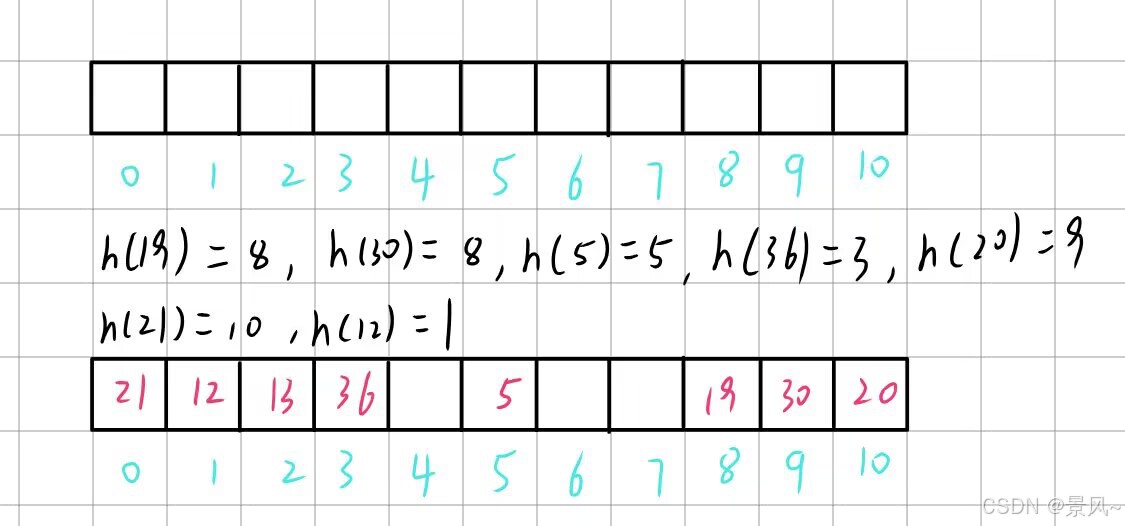 0 1 2 3 4 5 6 7 8 9 10
h(19) = 8, h(30) = 8, h(5) = 5, h(36) = 3, h(20) = 9
h(21) = 10, h(12) = 1
21 12 13 36 5 19 30 20
0 1 2 3 4 5 6 7 8 9 10
CSDN @景风~